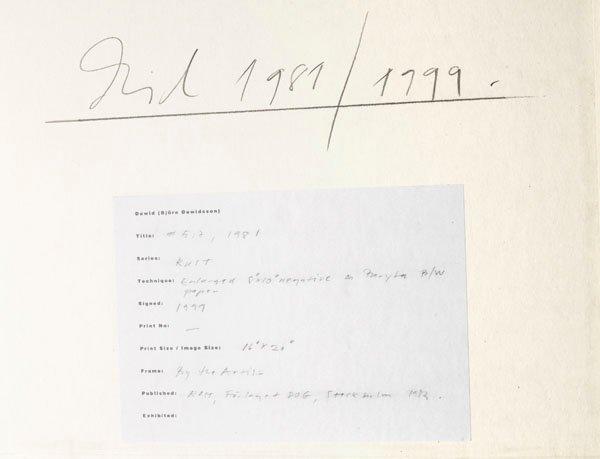 Dawid 1981/1999.
Dawid (Björn Dawidsson)
Title: #5:7, 1981
Series: RUST
Technique: Enlarged 8"x10" negative on Baryta B/W
paper
Signed: 1999
Print No: —
Print Size / Image Size: 16" x 20"
Frame: By the Artist
Published: Förlaget Stockholm 1982.
Exhibited: